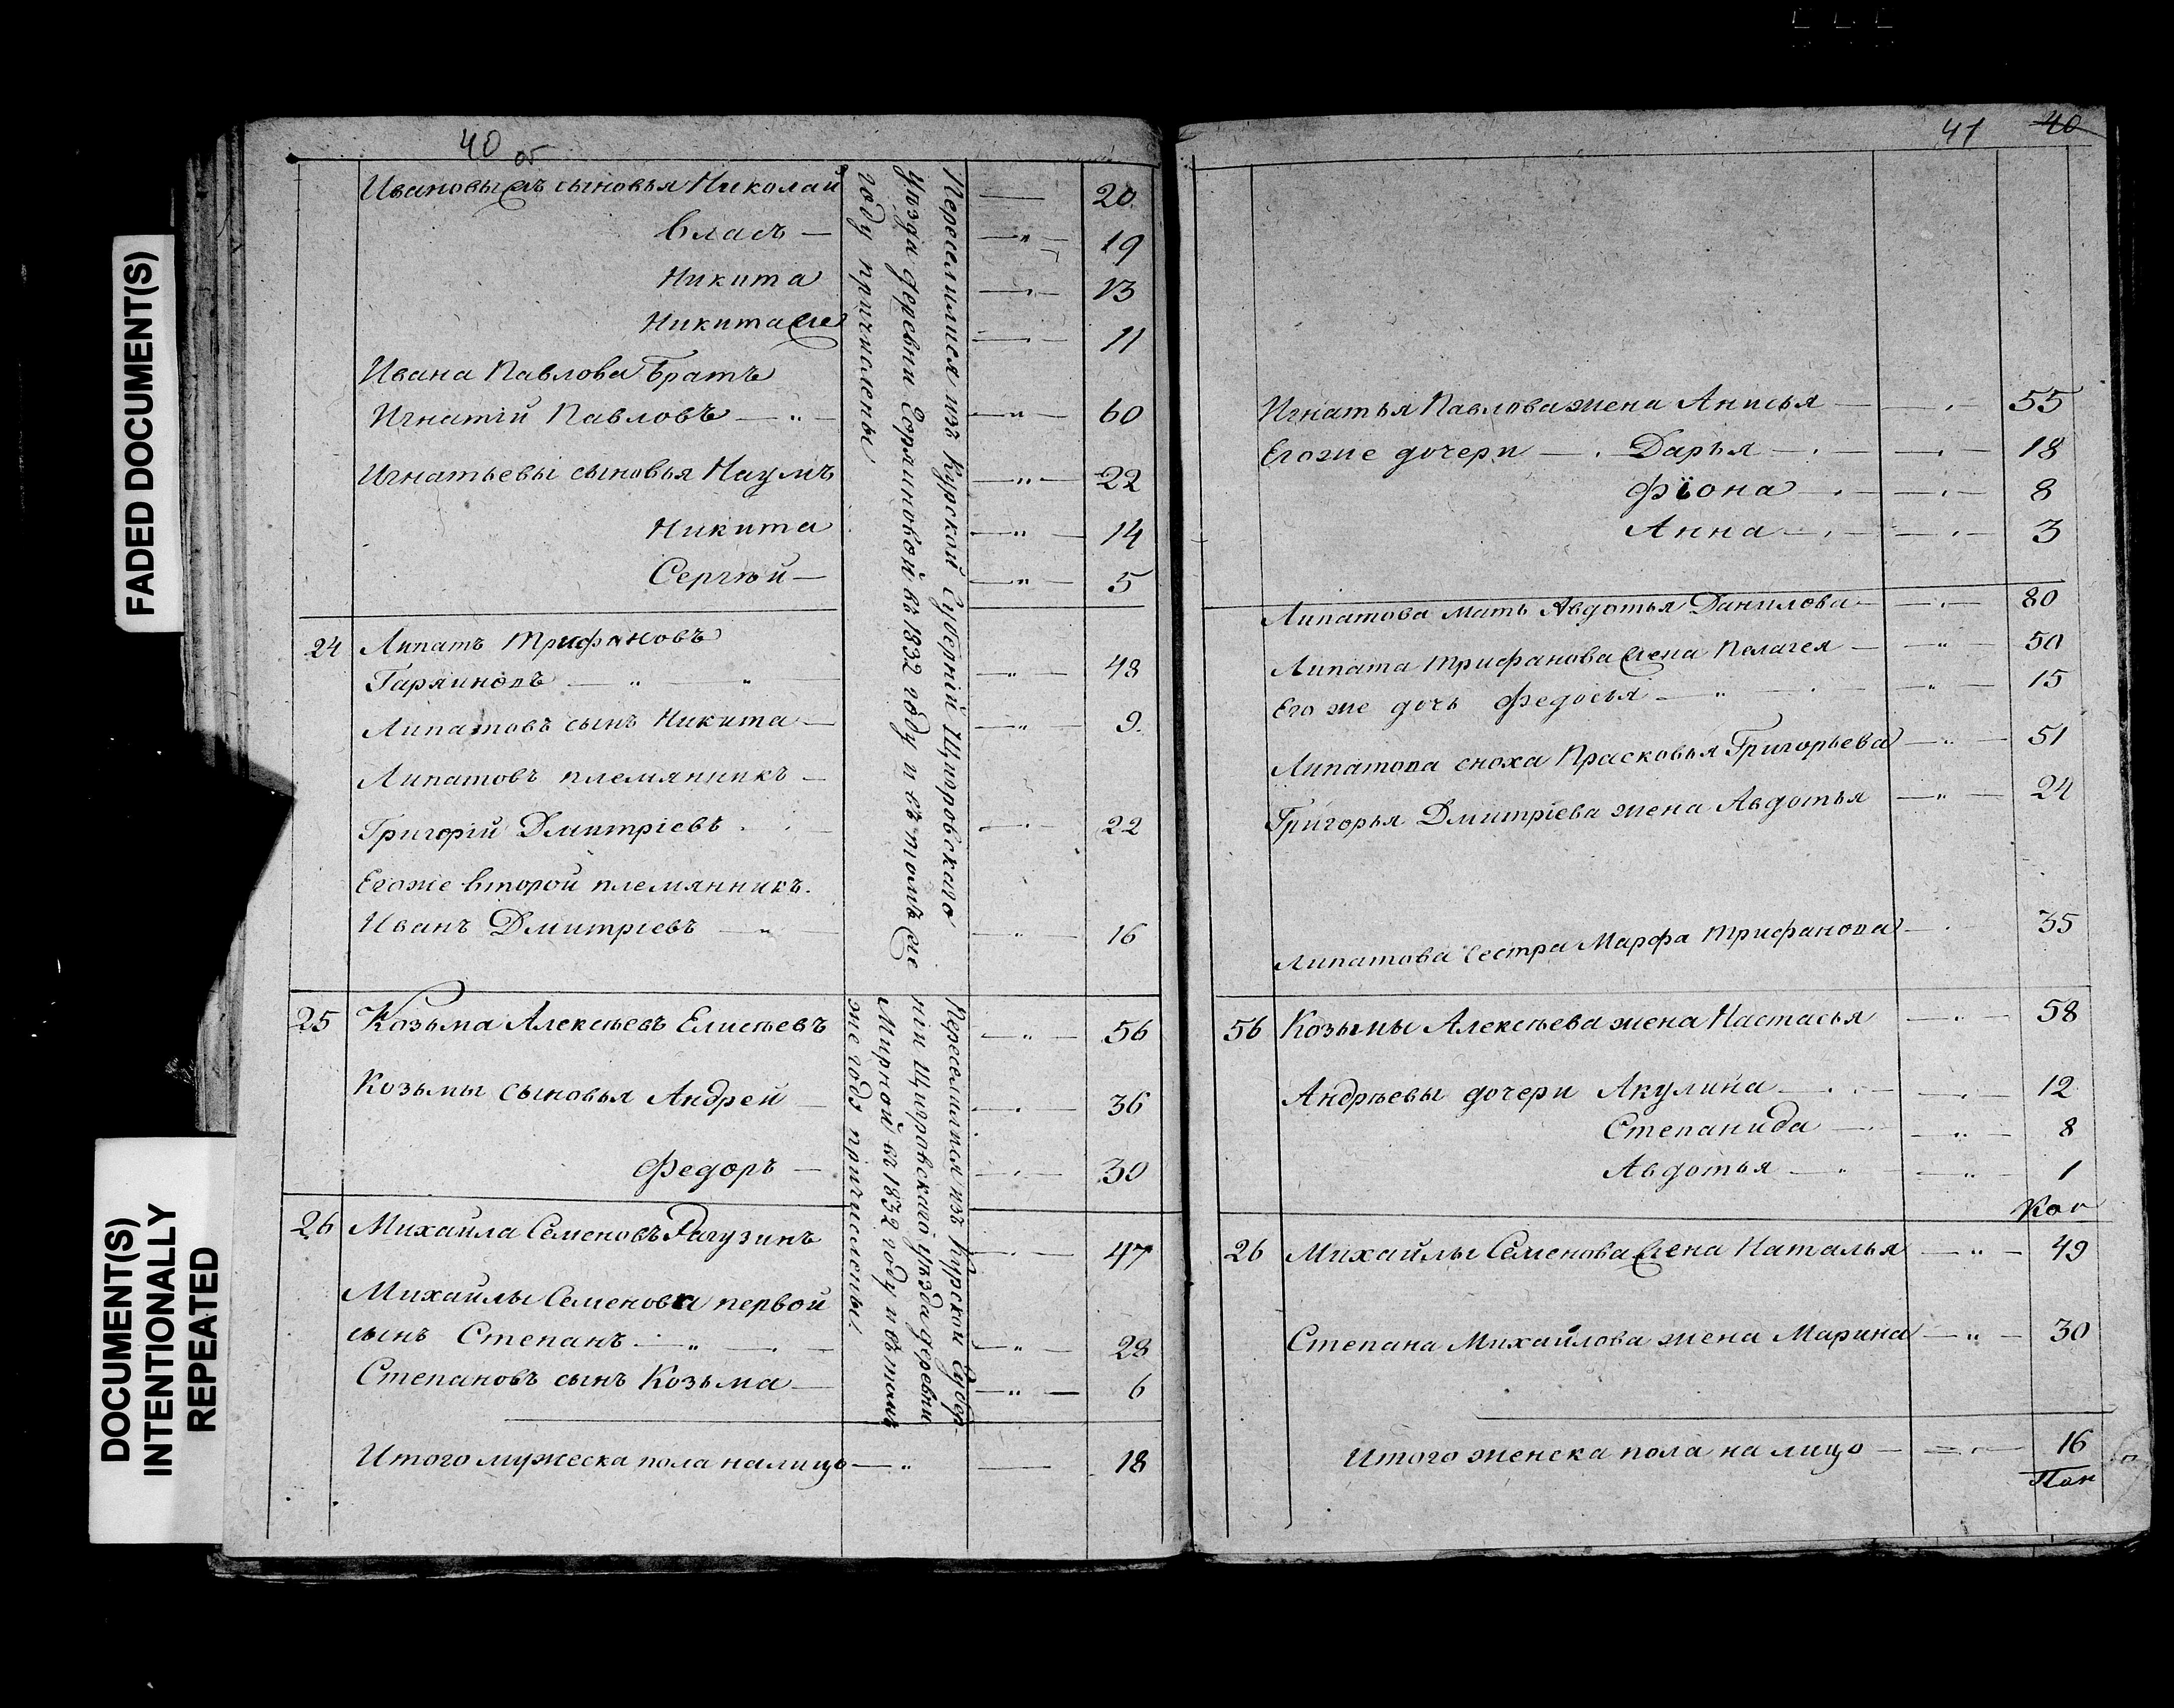 FADED DOCUMENT(S)
DOCUMENT(S)
INTENTIONALLY
REPEATED
40 об
Ивановы же сыновья Николай 20
Власъ 19
Никита 13
Никита же 11
Ивана Павлова братъ
Игнатій Павловъ 60
Игнатьевы сыновья Наумъ 22
Никита 14
Сергѣй 5
24 Липатъ Трифановъ
Гаряиновъ 48
Липатовъ сынъ Никита 9
Липатовъ племянникъ
Григорій Дмитріевъ 22
Егоже второй племянникъ
Иванъ Дмитріевъ 16
Переселились изъ Курской Губерній Щигровскаго
уѣзда деревни Горяиновой въ 1832 году и въ томъ же
году причислены
25 Козьма Алексѣевъ Елисѣевъ 56
Козьмы сыновья Андрей 36
Федоръ 30
26 Михайла Семеновъ Рагузинъ 47
Михайлы Семенова первой
сынъ Степанъ 28
Степановъ сынъ Козьма 6
Переселился изъ Курской Губер-
ніи Щигровскаго уѣзда деревни
Мирной въ 1832 году и въ томъ
же году причислены.
Итого мужеска пола налицо 18
41 40
Игнатья Павлова жена Анисья 55
Егоже дочери Дарья 18
Фіона 8
Анна 3
Липатова мать Авдотья Данилова 80
Липата Трифанова жена Пелагея 50
Его же дочь Федосья 15
Липатова сноха Прасковья Григорьева 51
Григорья Дмитріева жена Авдотья 24
Липатова сестра Марфа Трифанова 35
56 Козьмы Алексѣева жена Настасья 58
Андрѣевы дочери Акулина 12
Степанида 8
Авдотья 1
26 Михайлы Семенова жена Наталья 49
Степана Михайлова жена Марина 30
Итого женска пола на лицо 16